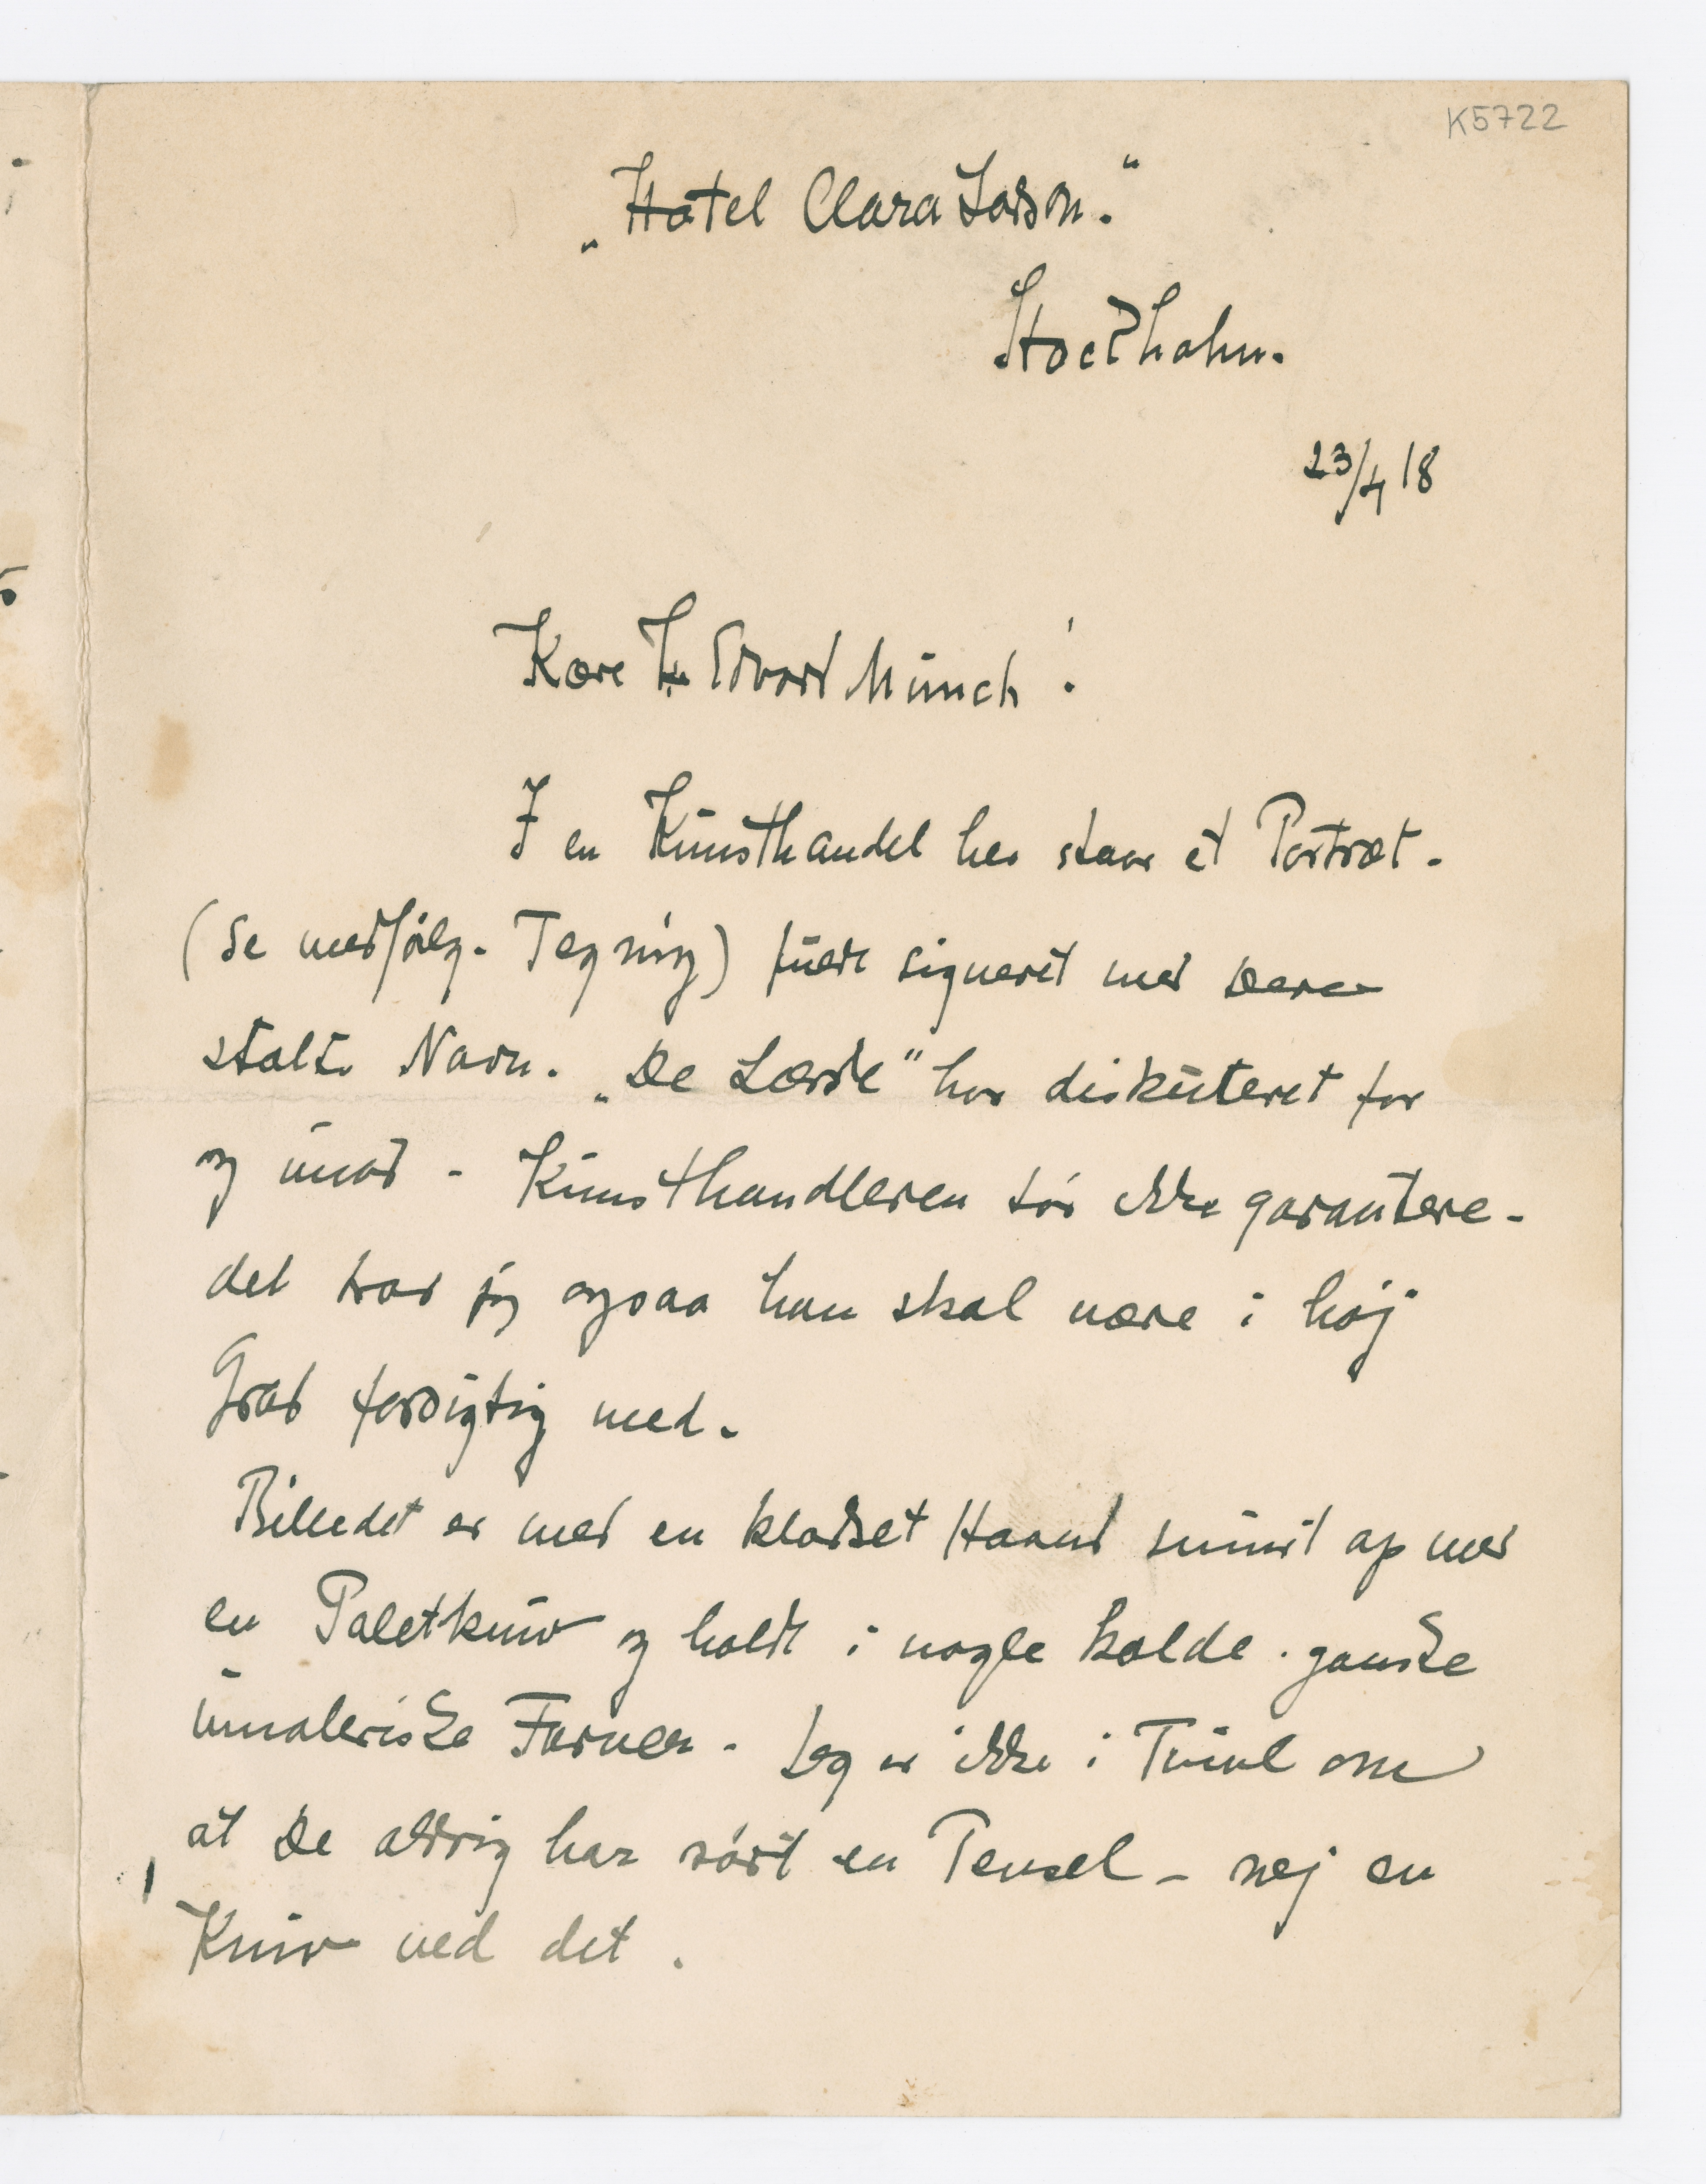 K5722
„Hotel Clara Larson."
Stockholm.
23/4 18
Kære Hr Edvard Münch!
I en Kunsthandel her staar et Portræt.
(Se medfölg. Tegning) fuldt signeret med Deres
stolte Navn. „De Lærde" har diskuteret for
og imod - Kunsthandleren tör ikke garantere -
det tror jeg ogsaa han skal være i höj
Grad forsigtig med.
Billedet er med en klodset Haand smurt op med
en Paletkniv og holdt i nogle kolde. ganske
umaleriske Farver. Jeg er ikke i Tvivl om
at De aldrig har rört en Pensel - nej en
Kniv ved det.